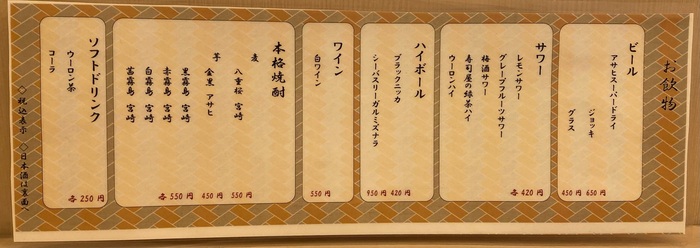 お飲物
ビール
アサヒスーパードライ
ジョッキ 650円
グラス 450円
サワー
レモンサワー
グレープフルーツサワー
梅酒サワー
寿司屋の緑茶ハイ
ウーロンハイ
各 420円
ハイボール
ブラックニッカ 420円
シーバスリーガルミズナラ 950円
ワイン
白ワイン 550円
本格焼酎
麦
八重桜 宮崎 550円
芋
金黒 アサヒ 450円
黒霧島 宮崎
赤霧島 宮崎
白霧島 宮崎
茜霧島 宮崎
各 550円
ソフトドリンク
ウーロン茶
コーラ
各 250円
◇税込表示 ◇日本酒は裏面へ